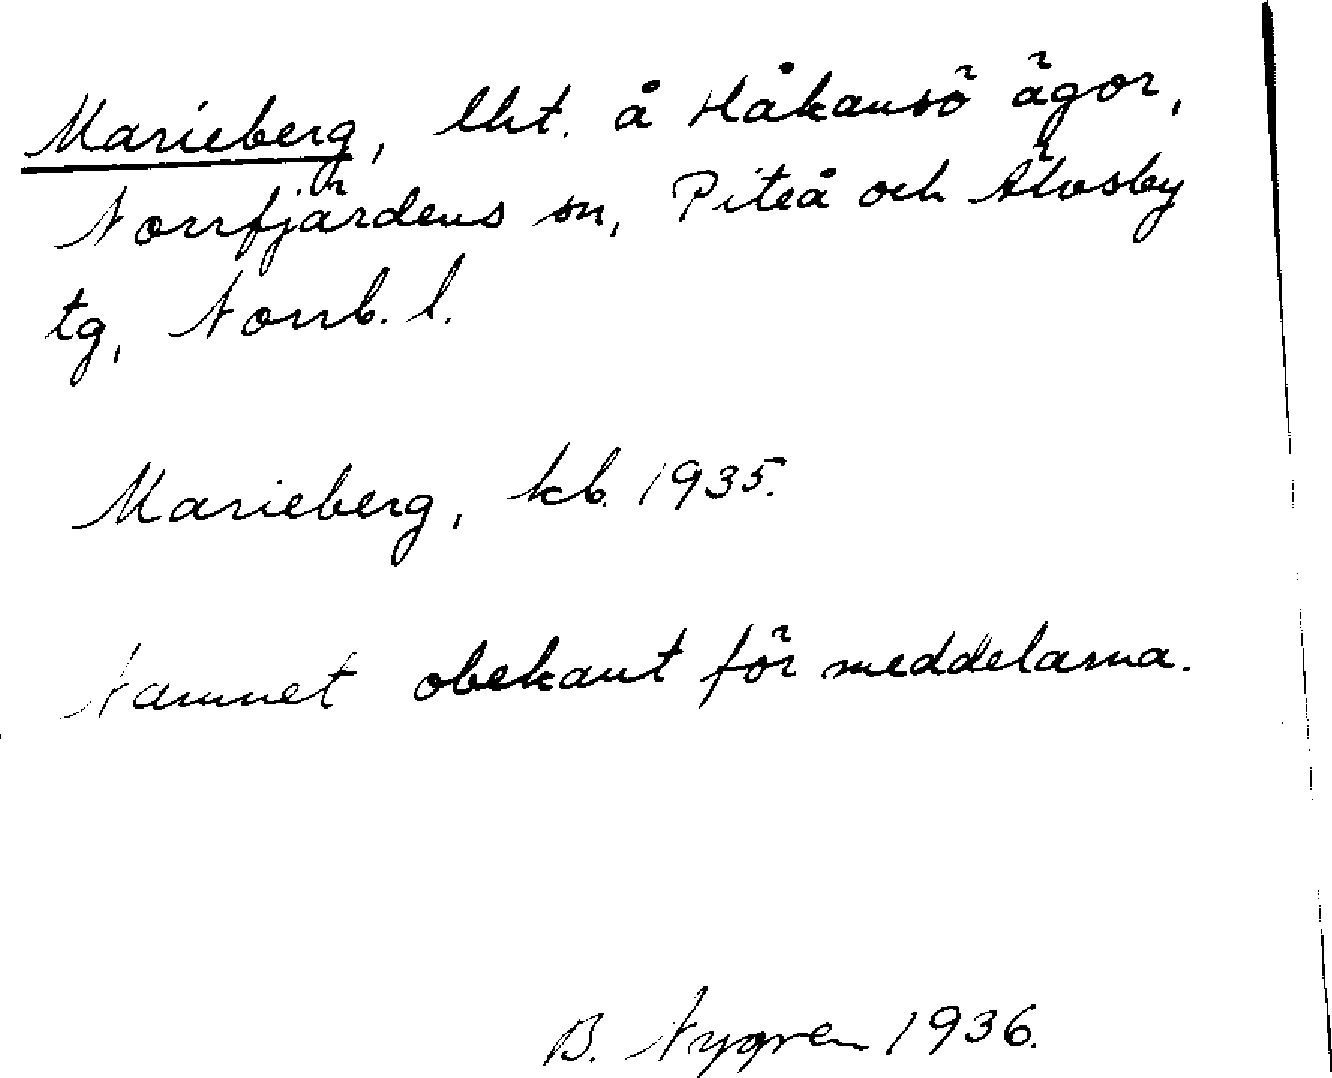 Marieberg, lht. å Håkansö ägor,
Norrfjärdens sn, Piteå och Älvsby
tg, Norrb. l.
Marieberg, kb. 1935.
Namnet obekant för meddelarna.
B. Nygren 1936.